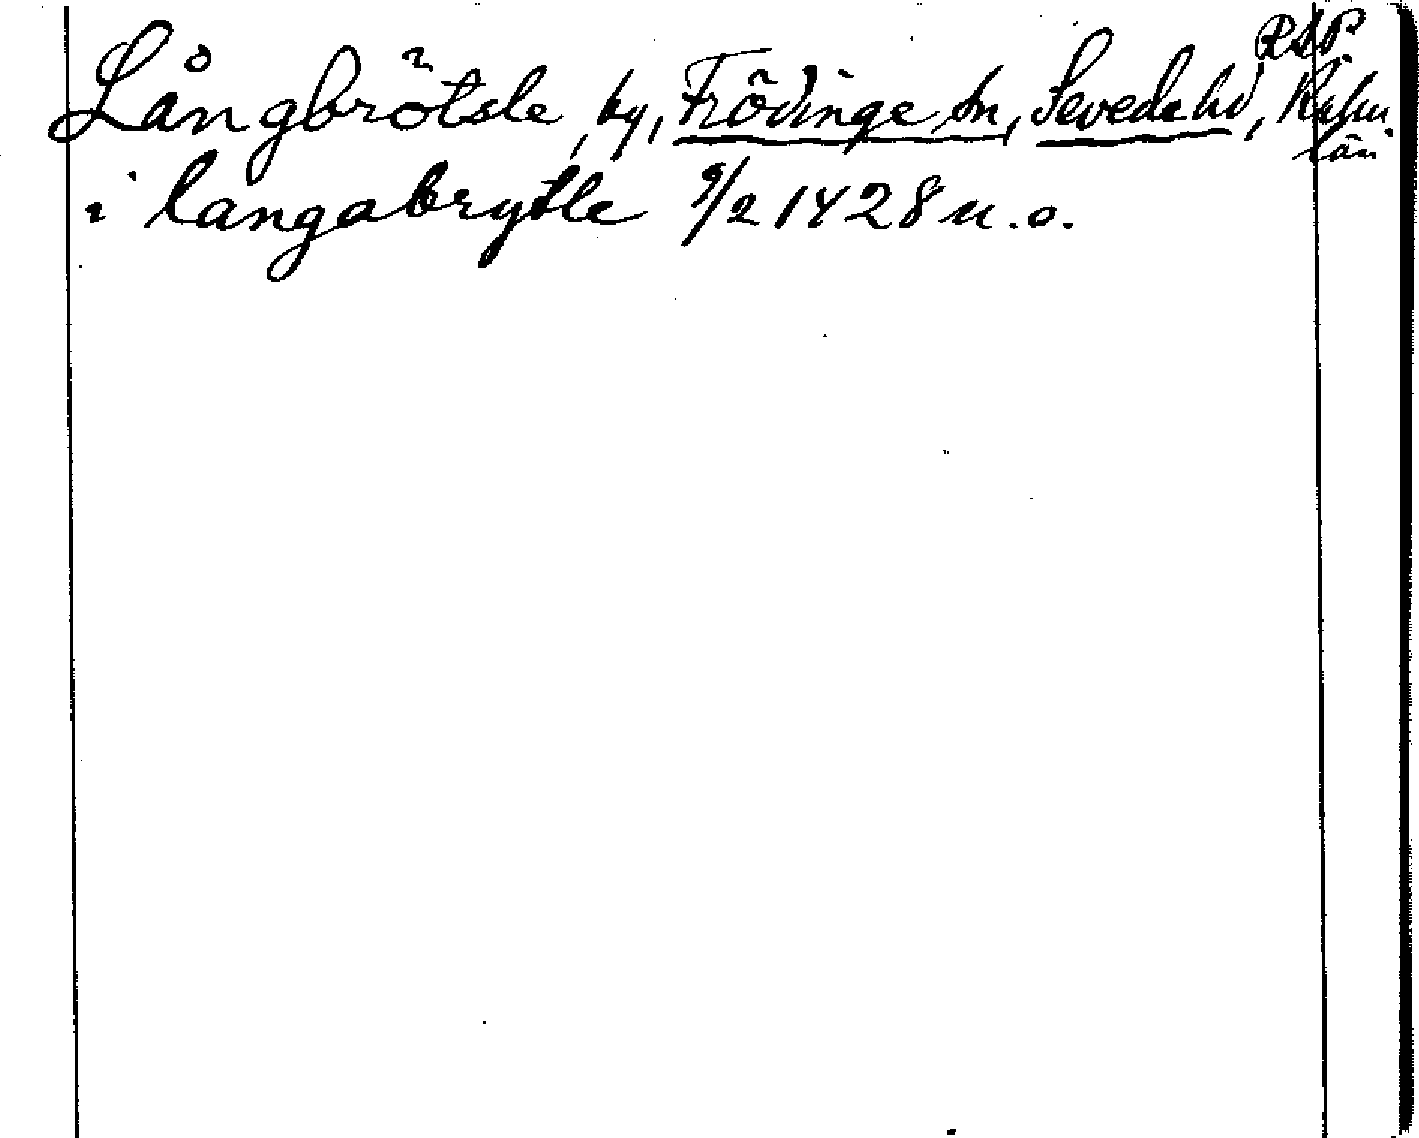 RAP
Långbrötsle, by, Frödinge sn, Sevede hd, Kalm.
län
i langabrytle 9/2 1428 u.o.